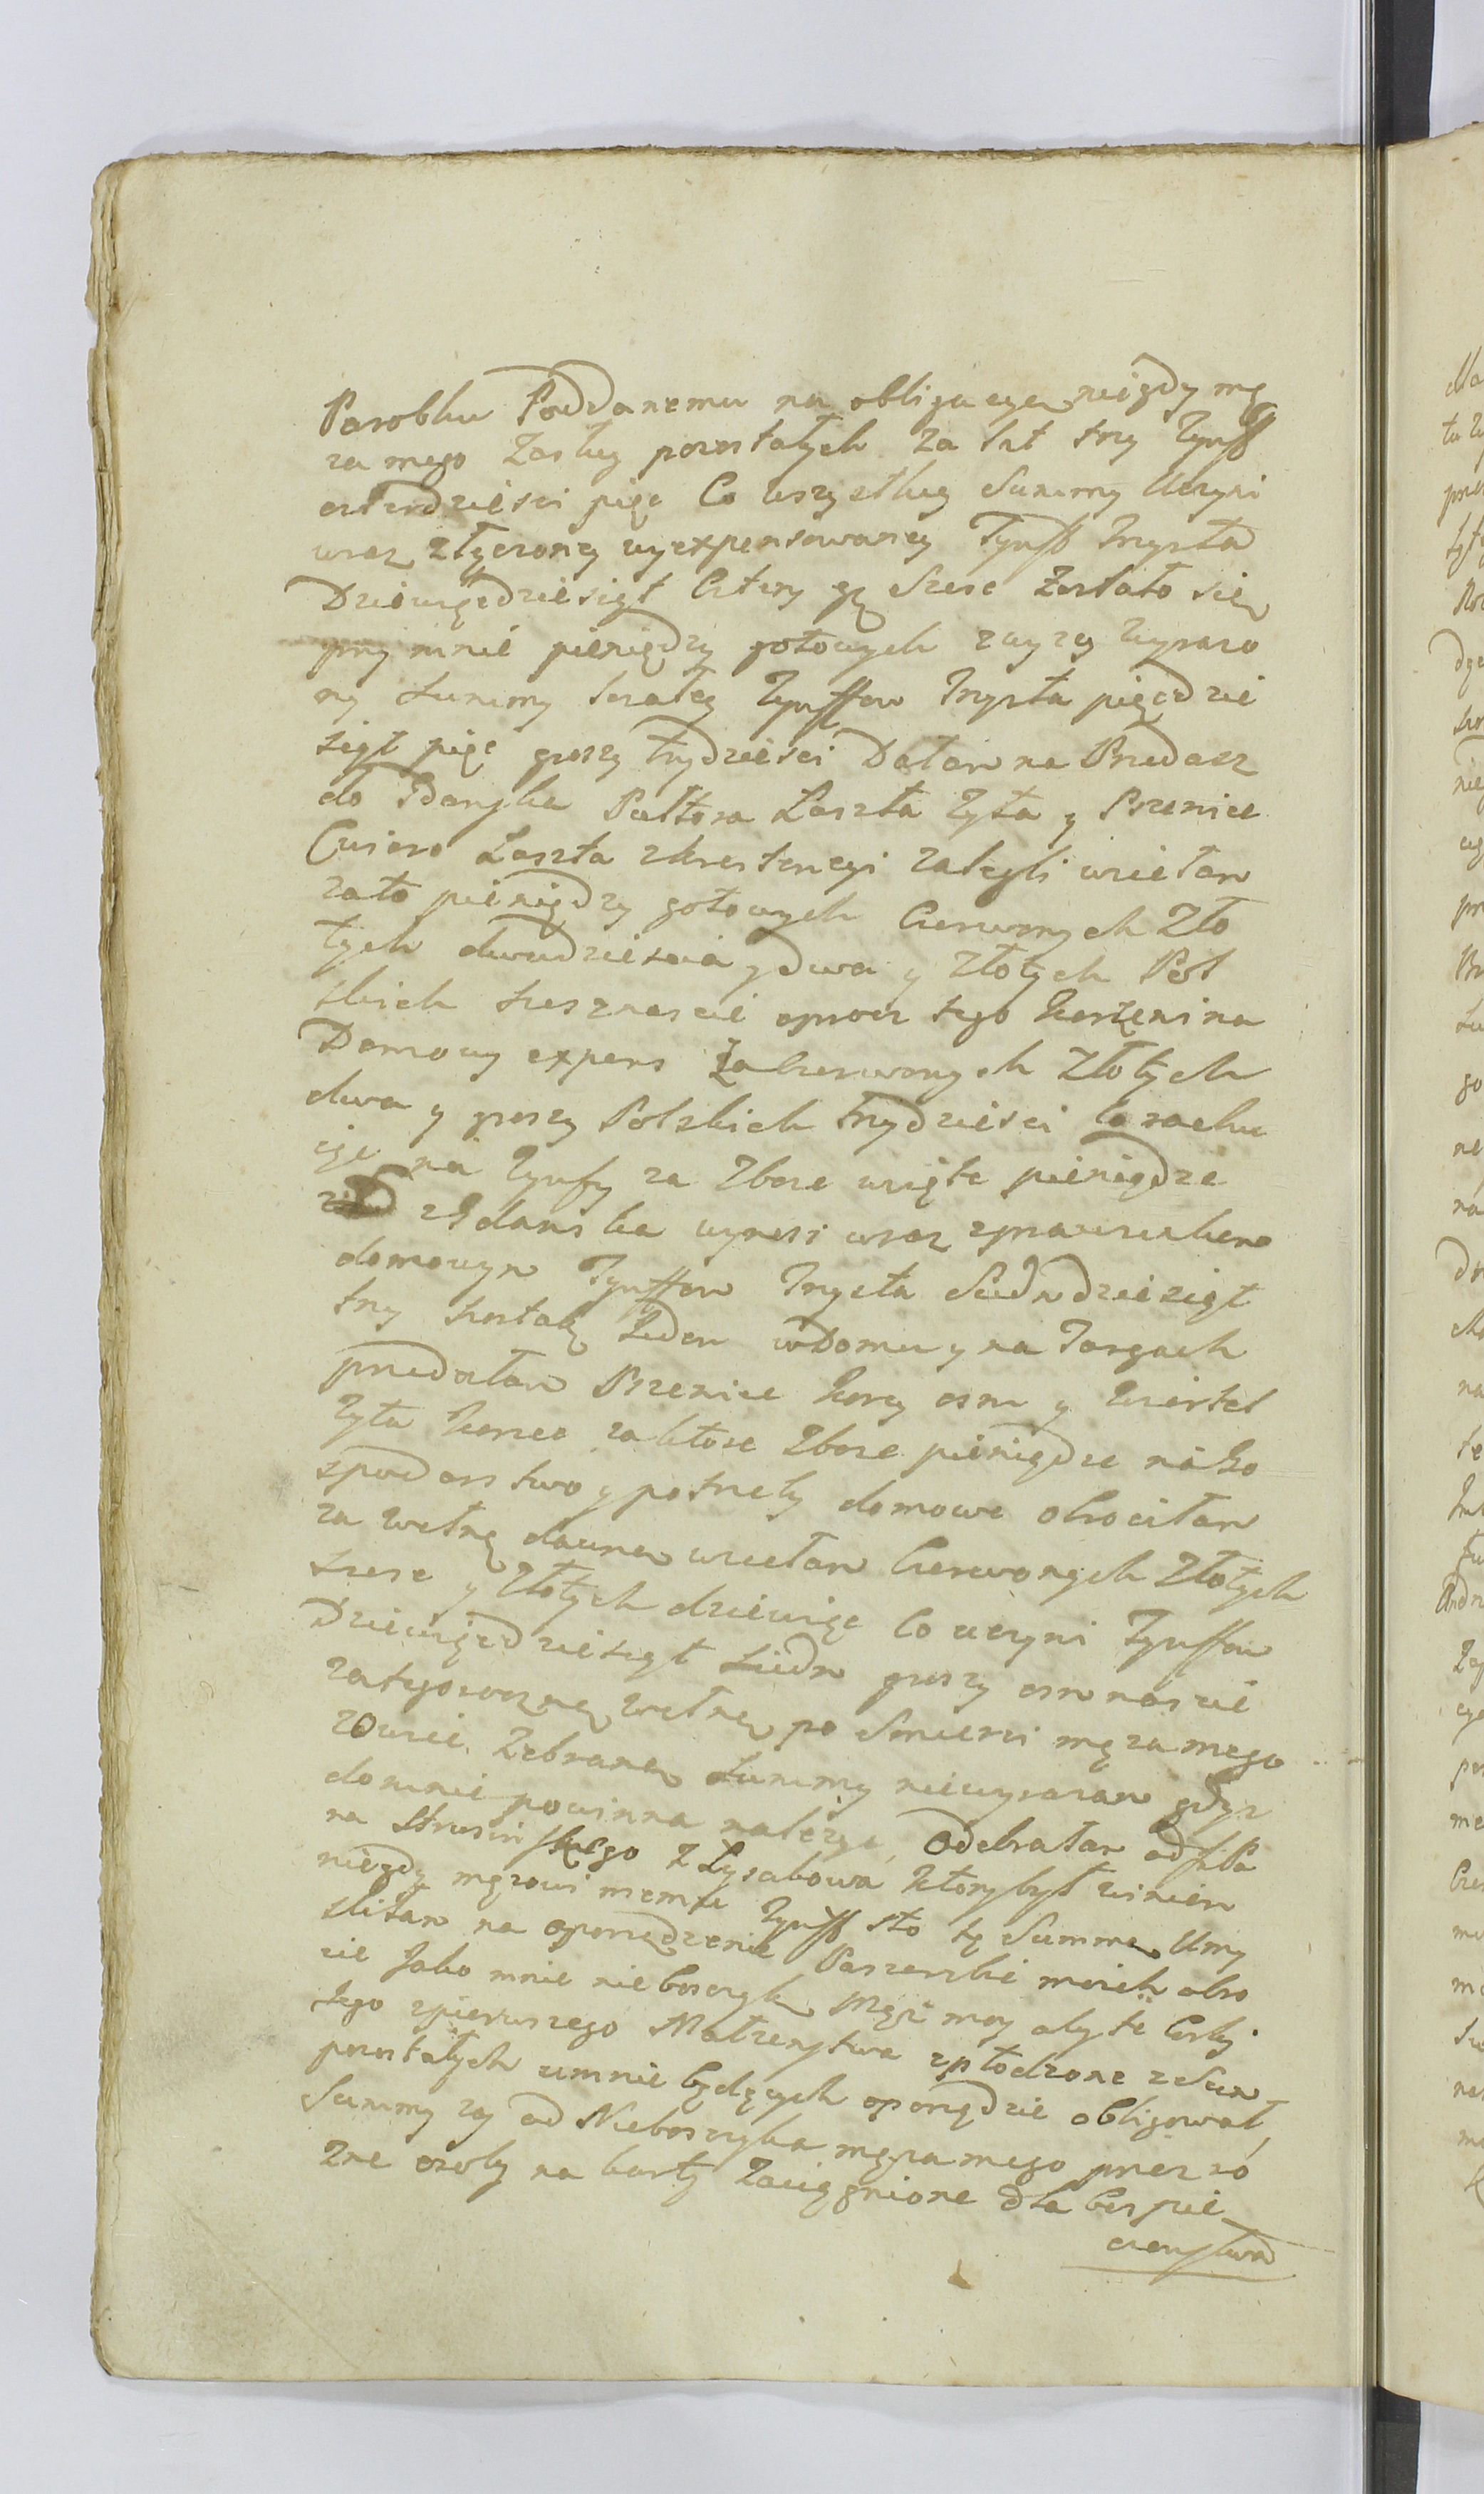 Parobku Poddanemu na obligacyę niegdy mę
za mego Zasług pozostałych za lat trzy Tynff
czterdziesci pięc Co wszystkiey Summy Uczyni
wraz złączoney wyexpensowaney Tynff Trzysta
Dziewięcdziesiąt Cztery gr Szesc Zostało się
przy mnie pieniędzy gotowych zwyzy wyrazo
ny Summy Tynffow Trzysta pięcdzie
siąt pięc groszy trzydziesci Dałam na Przedasz
do Gdanska Pułtora Laszta Zyta y Pszenice
Cwierc Laszta zkrestencyi zaległi wziełam
zato pieniędzy gotowych Czerwonych Zło
tych dwudziescia y dwa y Złotych Pol
skich szesznascie oprocz tego Korzeni na
Domowy expens za Czerwonych Złotych
dwa y groszy Polskich trzydziesci Co rachu
iąc na Tynfy za Zboze wzięte pieniądze
z Gdanska wynosi wraz
domowym Tynffow Trzysta Siedmdziesiąt
trzy szostak Jeden w Domu y na Targach
przedałam Pszenice Korcy osm y Wiertel
Zyta Korzec za ktore Zboze pieniądze na Go
spodarstwo y potrzeby domowe obrociłam
za wełnę dawną wziełam Czerwonych Złotych
szesc y Złotych dziewięc Co uczyni Tynffow
Dziewięcdziesiąt siedm groszy osmnascie
zategoroczną wełnę po Smierci męza mego
z Owiec Zebraną Summy niewyrazam gdyz
domnie powinna nalezyc, Odebrałam od JPa
na Strusinskiego Z Łysakowa ktory był winien
niegdy męzowi memu Tynff sto tę Summę Umy
sliłam na oporządzenie Pasierbki moich obro
cic Jako mnie nieboszczyk Mąż moy aby te Corki
Jego zpierwszego Małzenstwa zpłodzone z Sum
pozostałych umnie będących oporządzic obligował,
Summy zas od Nieboszczyka męza mego przez ro
zne osoby na karty Zaciągnione dla bespie
czenstwa